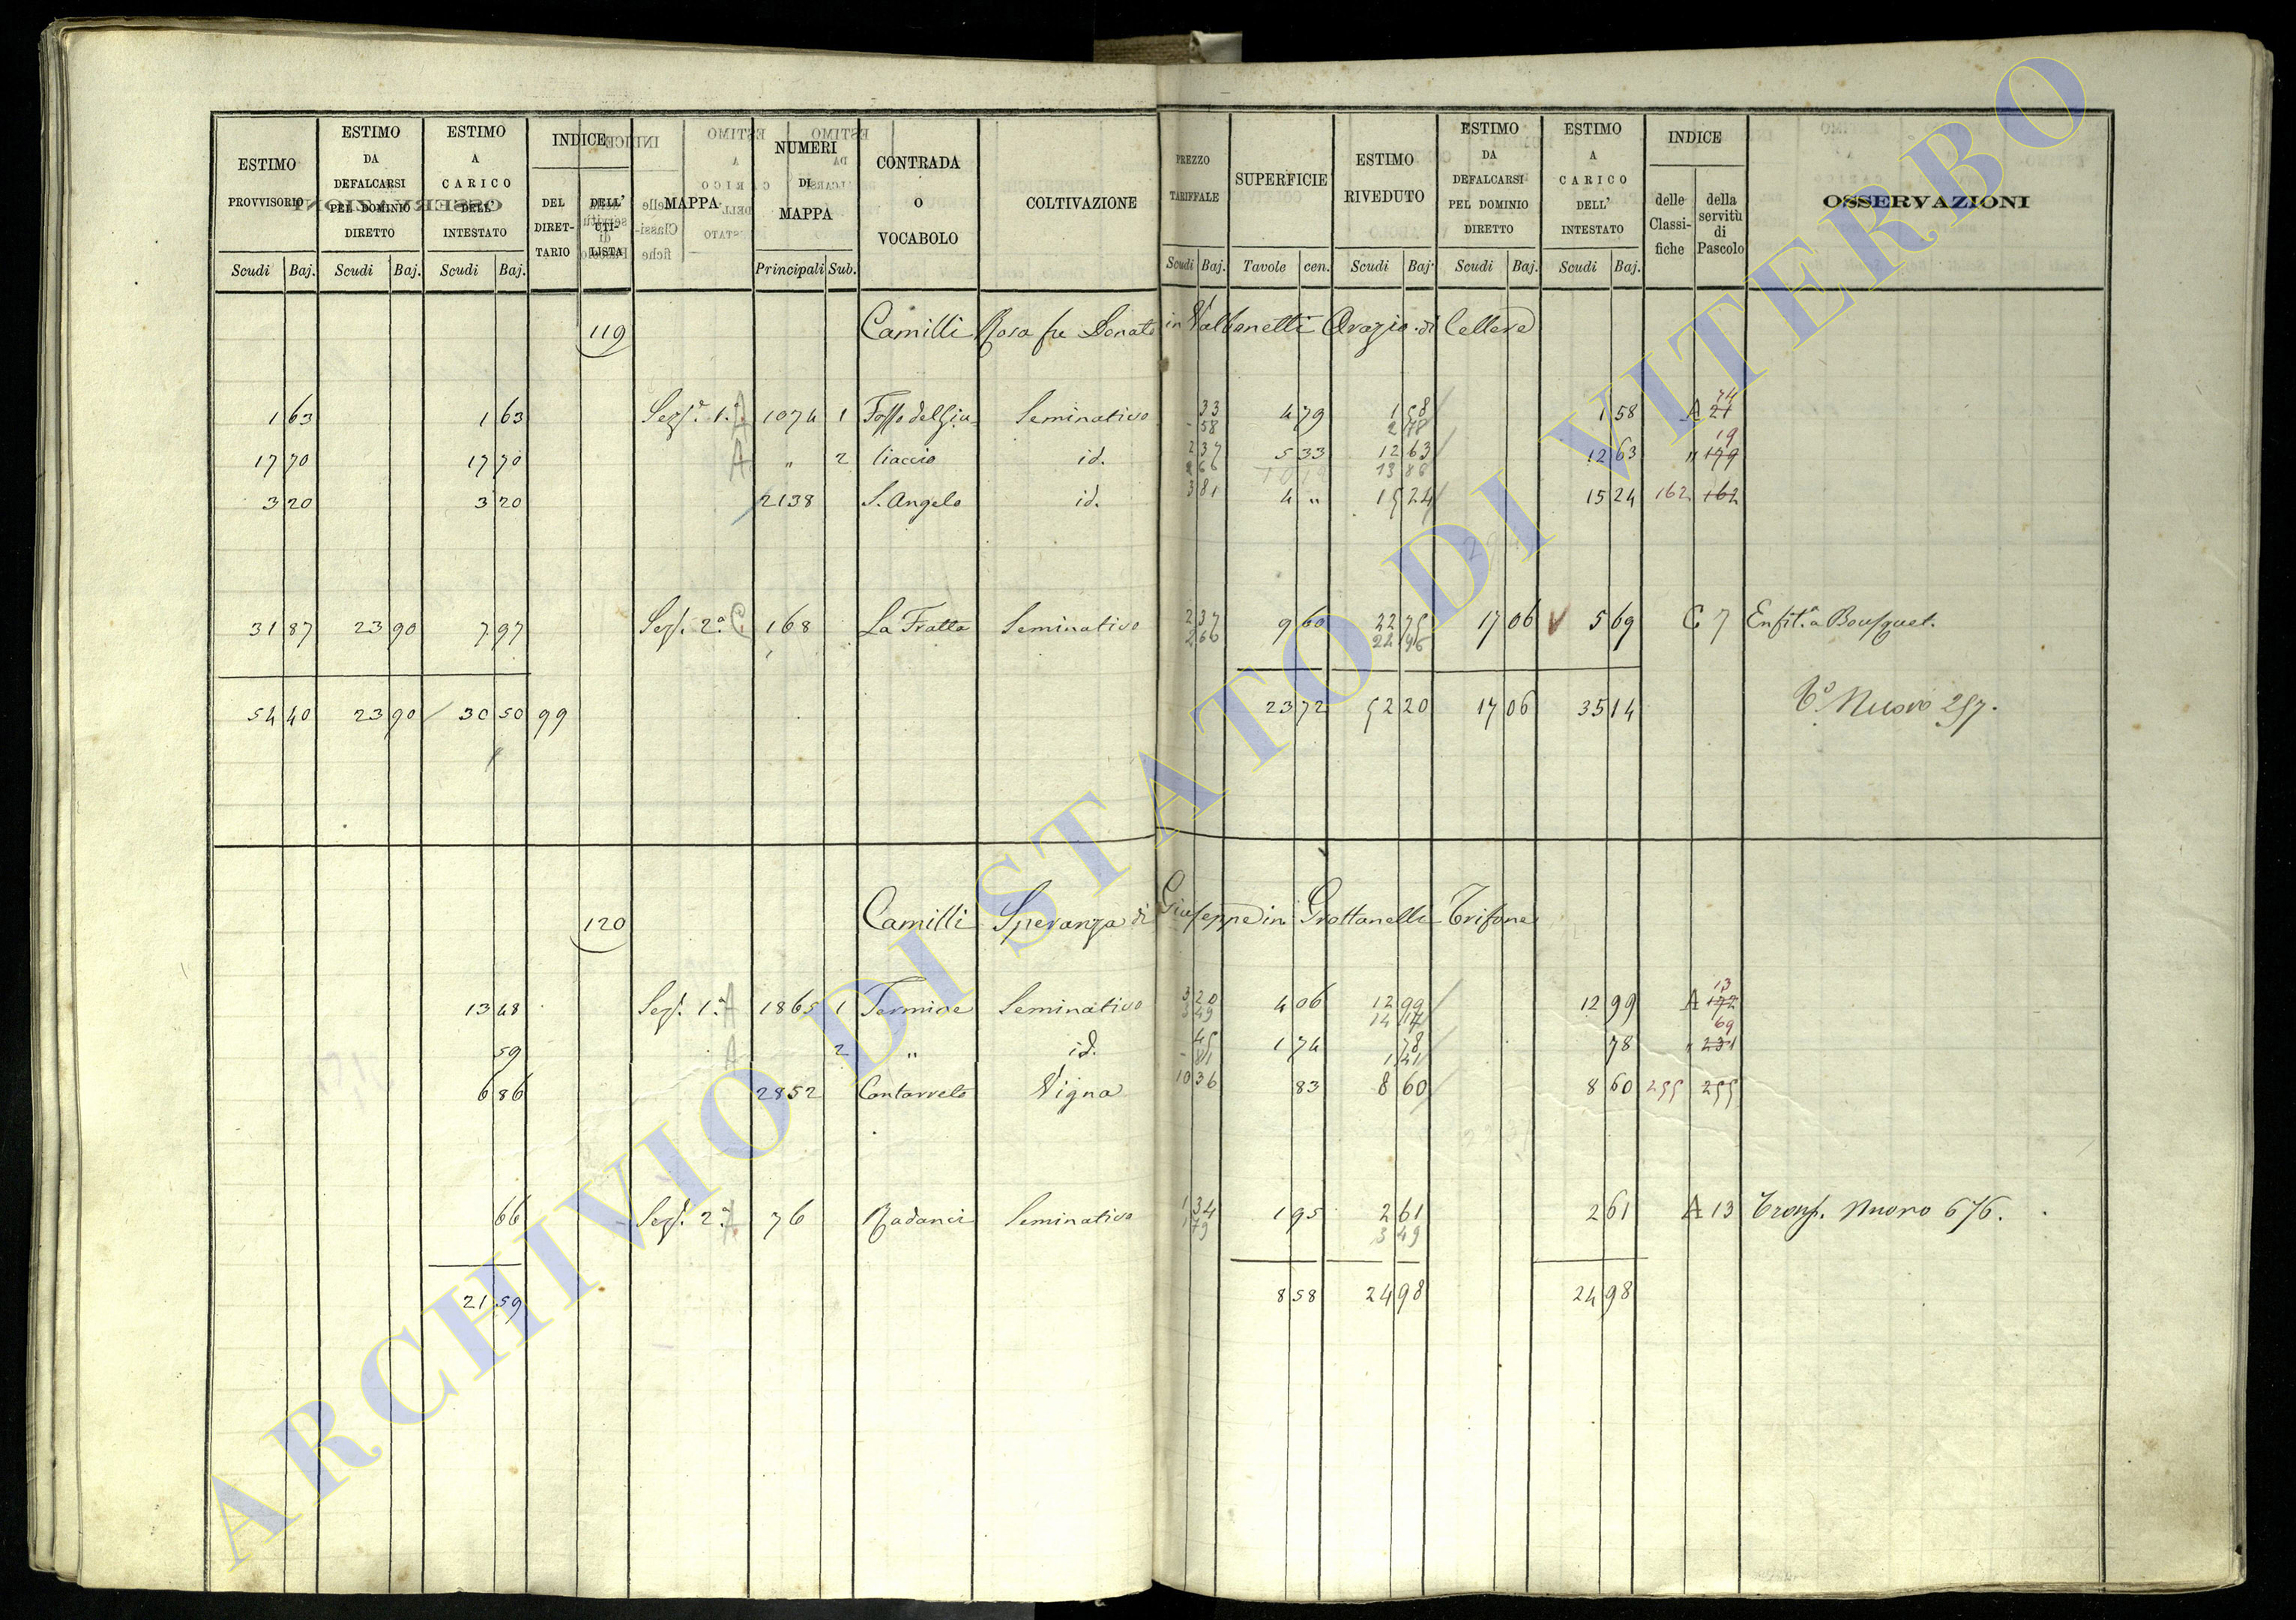 ESTIMO PROVVISORIO | ESTIMO DA DEFALCARSI PEL DOMINIO DIRETTO | ESTIMO A CARICO DELL' INTESTATO | INDICE DEL DIRETTARIO | DELL' UTILISTA | MAPPA | NUMERI DI MAPPA | CONTRADA O VOCABOLO | COLTIVAZIONE | PREZZO TARIFFALE | SUPERFICIE | ESTIMO RIVEDUTO | ESTIMO DA DEFALCARSI PEL DOMINIO DIRETTO | ESTIMO A CARICO DELL' INTESTATO | INDICE delle Classifiche | della servitù di Pascolo | OSSERVAZIONI
Scudi Baj. | Scudi Baj. | Scudi Baj. | Principali Sub. | Scudi Baj. | Tavole cen. | Scudi Baj. | Scudi Baj. | Scudi Baj.
119 Camilli Rosa fu Donato in Valbanetti Orazio di Cellere
1 63 | 1 63 | Sez. 1.a A | 1074 | 1 | Fosso del Ghia- | Seminativo | 33 | 4 79 | 1 58 | 1 58 | A 21 74
- 58 | 2 78
17 70 | 17 70 | A | " | 2 | liaccio | id. | 2 37 | 5 33 | 12 63 | 12 63 | " 179 19
2 66 | 13 88
3 20 | 3 20 | 2138 | S. Angelo | id. | 3 81 | 4 " | 15 24 | 15 24 | 162 162
31 87 | 23 90 | 7 97 | Sez. 2.a C | 168 | La Fratta | Seminativo | 2 37 | 9 60 | 22 75 | 17 06 | 5 69 | C 7 | Enfit. a Bousquet.
2 66
54 40 | 23 90 | 30 50 | 99 | 23 72 | 52 20 | 17 06 | 35 14 | Nuovo 257.
120 Camilli Speranza di Giuseppe in Grottanelli Trifone
13 48 | Sez. 1.a A | 1865 | 1 | Termine | Seminativo | 3 20 | 4 06 | 12 99 | 12 99 | A 172 13
3 49 | 14 17
59 | A | 2 | " | id. | 45 | 1 74 | 78 | 78 | " 231 69
- 81 | 1 41
6 86 | 2852 | Cantarreto | Vigna | 10 36 | 83 | 8 60 | 8 60 | 255 255
66 | Sez. 2.a A | 76 | Radanci | Seminativo | 1 34 | 1 95 | 2 61 | 2 61 | A 13 | Trasp. Nuovo 676.
1 79 | 3 49
21 59 | 8 58 | 24 98 | 24 98
ARCHIVIO DI STATO DI VITERBO